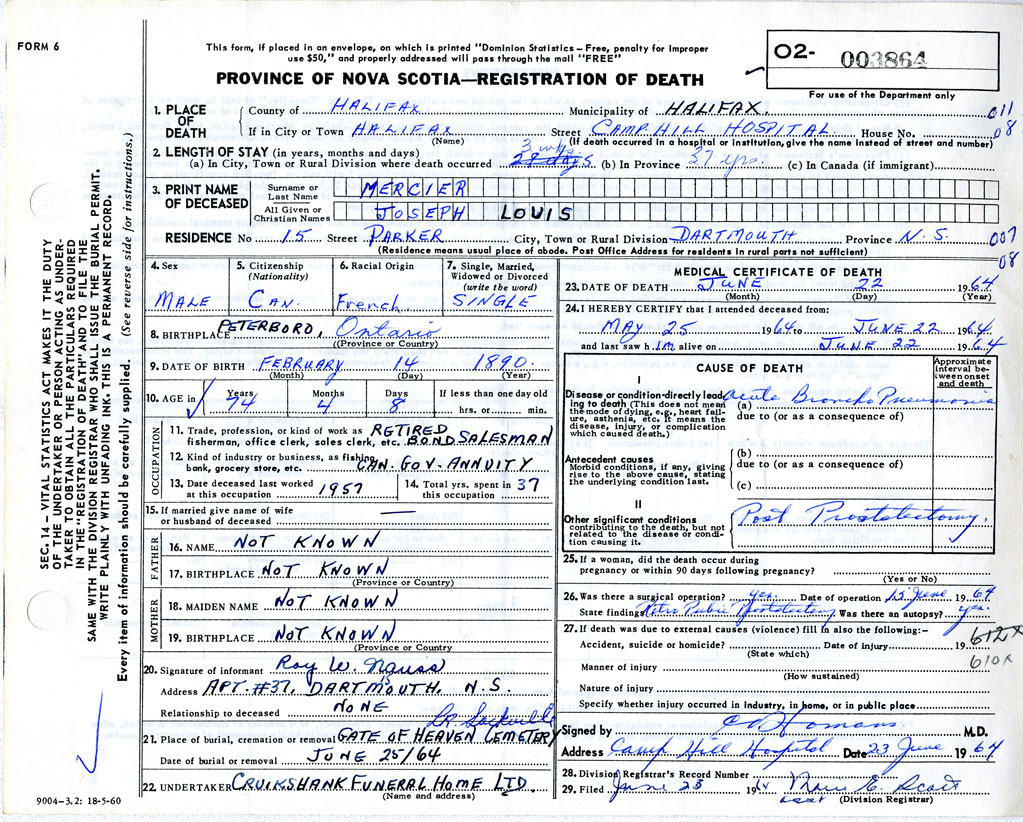 FORM 6
This form, if placed in an envelope, on which is printed "Dominion Statistics – Free, penalty for improper
use $50," and properly addressed will pass through the mail "FREE"
PROVINCE OF NOVA SCOTIA—REGISTRATION OF DEATH
02- 003864
For use of the Department only
1. PLACE OF DEATH
County of HALIFAX Municipality of HALIFAX. 011
If in City or Town HALIFAX Street CAMP HILL HOSPITAL House No. 08
(Name) (If death occurred in a hospital or institution, give the name instead of street and number)
2. LENGTH OF STAY (in years, months and days) 3 wks
(a) In City, Town or Rural Division where death occurred 28 days (b) In Province 37 yrs. (c) In Canada (if immigrant)
3. PRINT NAME OF DECEASED
Surname or Last Name MERCIER
All Given or Christian Names JOSEPH LOUIS
RESIDENCE No 15 Street PARKER City, Town or Rural Division DARTMOUTH Province N.S. 007
(Residence means usual place of abode. Post Office Address for residents in rural parts not sufficient) 08
4. Sex MALE
5. Citizenship (Nationality) CAN.
6. Racial Origin French
7. Single, Married, Widowed or Divorced (write the word) SINGLE
8. BIRTHPLACE PETERBORO, Ontario
(Province or Country)
9. DATE OF BIRTH FEBRUARY 14 1890
(Month) (Day) (Year)
10. AGE in Years 74 Months 4 Days 8 If less than one day old hrs. or min.
OCCUPATION
11. Trade, profession, or kind of work as fisherman, office clerk, sales clerk, etc. RETIRED BOND SALESMAN
12. Kind of industry or business, as fishing, bank, grocery store, etc. CAN. GOV. ANNUITY
13. Date deceased last worked at this occupation 1957
14. Total yrs. spent in this occupation 37
15. If married give name of wife or husband of deceased —
FATHER
16. NAME NOT KNOWN
17. BIRTHPLACE NOT KNOWN
(Province or Country)
MOTHER
18. MAIDEN NAME NOT KNOWN
19. BIRTHPLACE NOT KNOWN
(Province or Country
20. Signature of informant Roy W.
Address APT. #37, DARTMOUTH, N.S.
Relationship to deceased NONE
21. Place of burial, cremation or removal GATE OF HEAVEN CEMETERY Lr. Sackville
Date of burial or removal JUNE 25/64
22. UNDERTAKER CRUIKSHANK FUNERAL HOME LTD.
(Name and address)
MEDICAL CERTIFICATE OF DEATH
23. DATE OF DEATH JUNE 22 1964
(Month) (Day) (Year)
24. I HEREBY CERTIFY that I attended deceased from:
MAY 25 1964 to JUNE 22 1964
and last saw him alive on JUNE 22 1964
CAUSE OF DEATH
Approximate interval between onset and death
I
Disease or condition directly leading to death (This does not mean the mode of dying, e.g., heart failure, asthenia, etc. It means the disease, injury, or complication which caused death.)
(a) Acute Broncho Pneumonia
due to (or as a consequence of)
Antecedent causes
Morbid conditions, if any, giving rise to the above cause, stating the underlying condition last.
(b)
due to (or as a consequence of)
(c)
II
Other significant conditions contributing to the death, but not related to the disease or condition causing it.
Post Prostatectomy.
25. If a woman, did the death occur during
pregnancy or within 90 days following pregnancy?
(Yes or No)
26. Was there a surgical operation? yes. Date of operation 15 June 1964
State findings Retro Pubic Prostatectomy Was there an autopsy? yes.
27. If death was due to external causes (violence) fill in also the following:–
612X
Accident, suicide or homicide? Date of injury 19
(State which) 610X
Manner of injury
(How sustained)
Nature of injury
Specify whether injury occurred in industry, in home, or in public place
Signed by Homans M.D.
Address Camp Hill Hospital Date 23 June 1964
28. Division Registrar's Record Number
29. Filed June 25 1964 E. Scott
(Division Registrar)
SEC. 14 – VITAL STATISTICS ACT MAKES IT THE DUTY
OF THE UNDERTAKER OR PERSON ACTING AS UNDER-
TAKER TO OBTAIN ALL THE PARTICULARS REQUIRED
IN THE "REGISTRATION OF DEATH" AND TO FILE THE
SAME WITH THE DIVISION REGISTRAR WHO SHALL ISSUE THE BURIAL PERMIT.
WRITE PLAINLY WITH UNFADING INK. THIS IS A PERMANENT RECORD.
Every item of information should be carefully supplied. (See reverse side for instructions.)
9004–3.2: 18-5-60